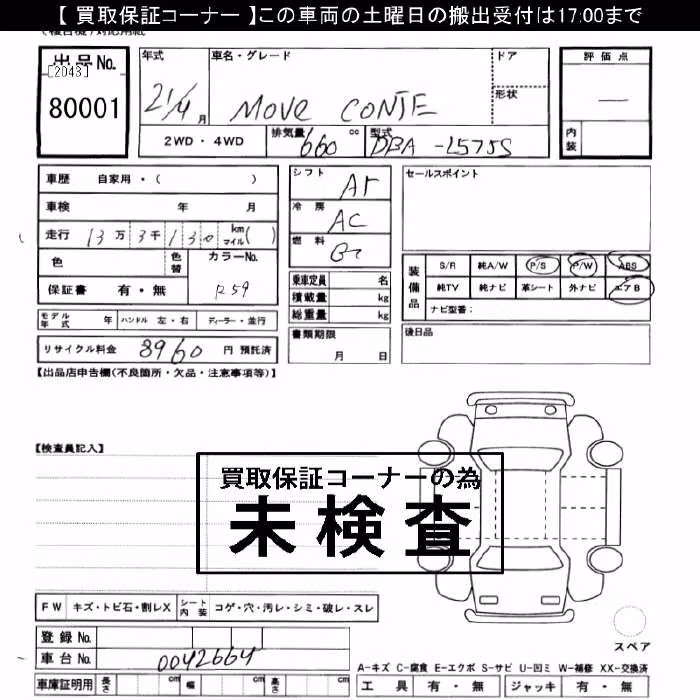 【 買取保証コーナー 】この車両の土曜日の搬出受付は17:00まで
出品No.
[2043]
80001
年式
21/4 月
車名・グレード
MOVE CONTE
ドア
形状
評価点
—
内装
2WD・4WD
排気量 660 cc
型式 DBA-L575S
車歴 自家用・( )
車検 年 月
走行 13万3千130 km マイル( )
色
色替
カラーNo.
R59
保証書 有・無
シフト AT
冷房 AC
燃料
乗車定員 名
積載量 kg
総重量 kg
書類期限
月 日
セールスポイント
装備品
S/R 純A/W P/S P/W ABS
純TV 純ナビ 革シート 外ナビ エアB
ナビ型番:
後日品
モデル年式 年 ハンドル 左・右 ディーラー・並行
リサイクル料金 8960 円 預託済
【出品店申告欄(不良箇所・欠品・注意事項等)】
【検査員記入】
買取保証コーナーの為
未検査
FW キズ・トビ石・割レX シート内装 コゲ・穴・汚レ・シミ・破レ・スレ
登録No.
車台No. 0042664
車庫証明用 長さ cm 幅 cm 高さ cm
スペア
A-キズ C-腐食 E-エクボ S-サビ U-凹ミ W-補修 XX-交換済
工具 有・無 ジャッキ 有・無